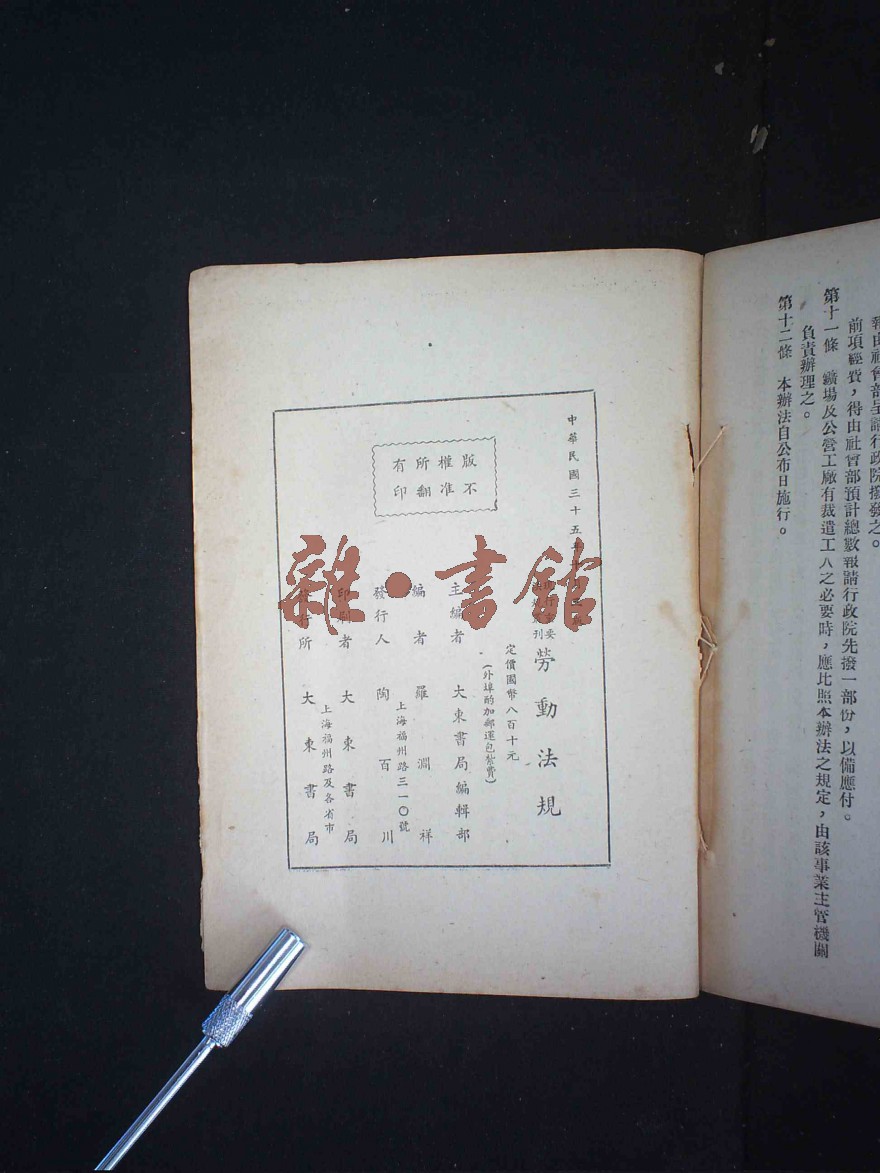 報由社會部呈請行政院撥發之。
前項經費，得由社會部預計總數報請行政院先撥一部份，以備應付。
第十一條　鑛場及公營工廠有裁遣工人之必要時，應比照本辦法之規定，由該事業主管機關
負責辦理之。
第十二條　本辦法自公布日施行。
中華民國三十五
版權所有
不准翻印
刊
勞動法規
定價國幣八百十元
（外埠酌加郵運包紮費）
主編者　大東書局編輯部
編者　羅淵祥
發行人　陶百川
上海福州路三一〇號
印刷者　大東書局
上海福州路及各省市
發行所　大東書局
雜·書館